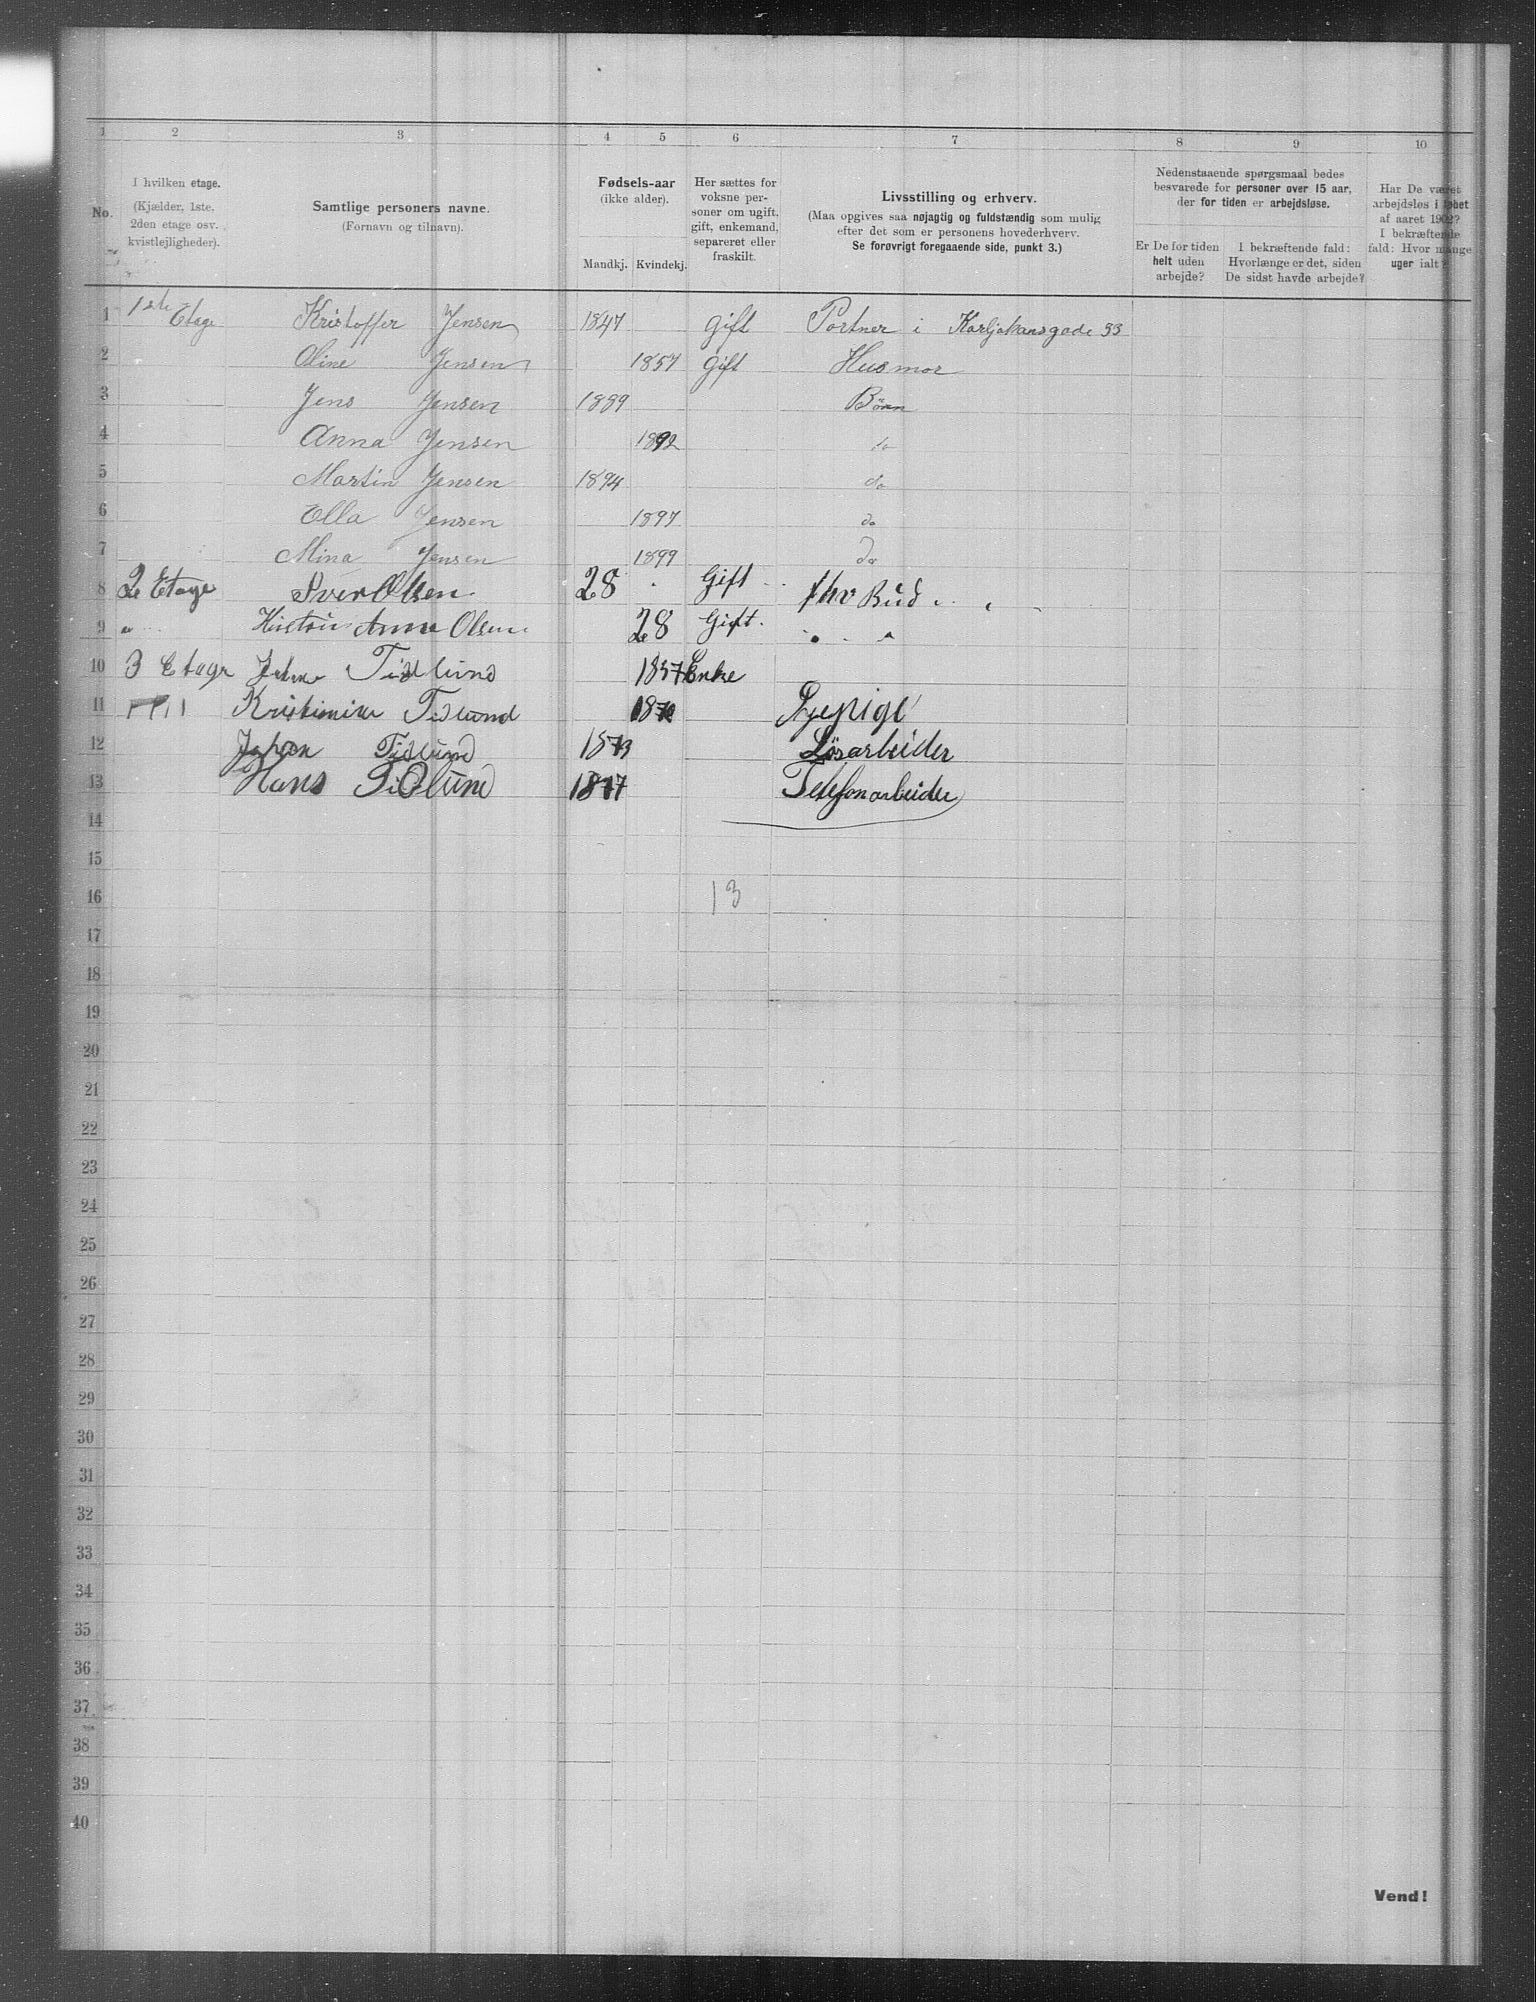 1 2 3 4 5 6 7 8 9 10
No.
I hvilken etage.
(Kjælder, 1ste, 2den etage osv. kvistlejligheder).
Samtlige personers navne.
(Fornavn og tilnavn).
Fødsels-aar
(ikke alder).
Mandkj. Kvindekj.
Her sættes for voksne personer om ugift, gift, enkemand, separeret eller fraskilt.
Livsstilling og erhverv.
(Maa opgives saa nøjagtig og fuldstændig som mulig
efter det som er personens hovederhverv.
Se forøvrigt foregaaende side, punkt 3.)
Nedenstaaende spørgsmaal bedes
besvarede for personer over 15 aar,
der for tiden er arbejdsløse.
Er De for tiden
helt uden
arbejde?
I bekræftende fald:
Hvorlænge er det, siden
De sidst havde arbejde?
Har De været
arbejdsløs i løbet
af aaret 1902?
I bekræftende
fald: Hvor mange
uger ialt?
1 1ste Etage Kristoffer Jensen 1847 Gift Portner i Karljohansgade 33
2 Oline Jensen 1857 Gift Husmor
3 Jens Jensen 1889 Børn
4 Anna Jensen 1892 do
5 Martin Jensen 1894 do
6 Ella Jensen 1897 do
7 Mina Jensen 1899 do
8 2 Etage Sver Olsen 28 Gift Bud
9 " Anna Olsen 28 Gift " "
10 3 Etage Tidlund 1837 Enke
11 Kristinine Tidlund 187 Sypige
12 Johan Tidlund 1873 Løsarbeider
13 Hans Tidlund 1877 Telefonarbeider
14
15
16 13
17
18
19
20
21
22
23
24
25
26
27
28
29
30
31
32
33
34
35
36
37
38
39
40
Vend!